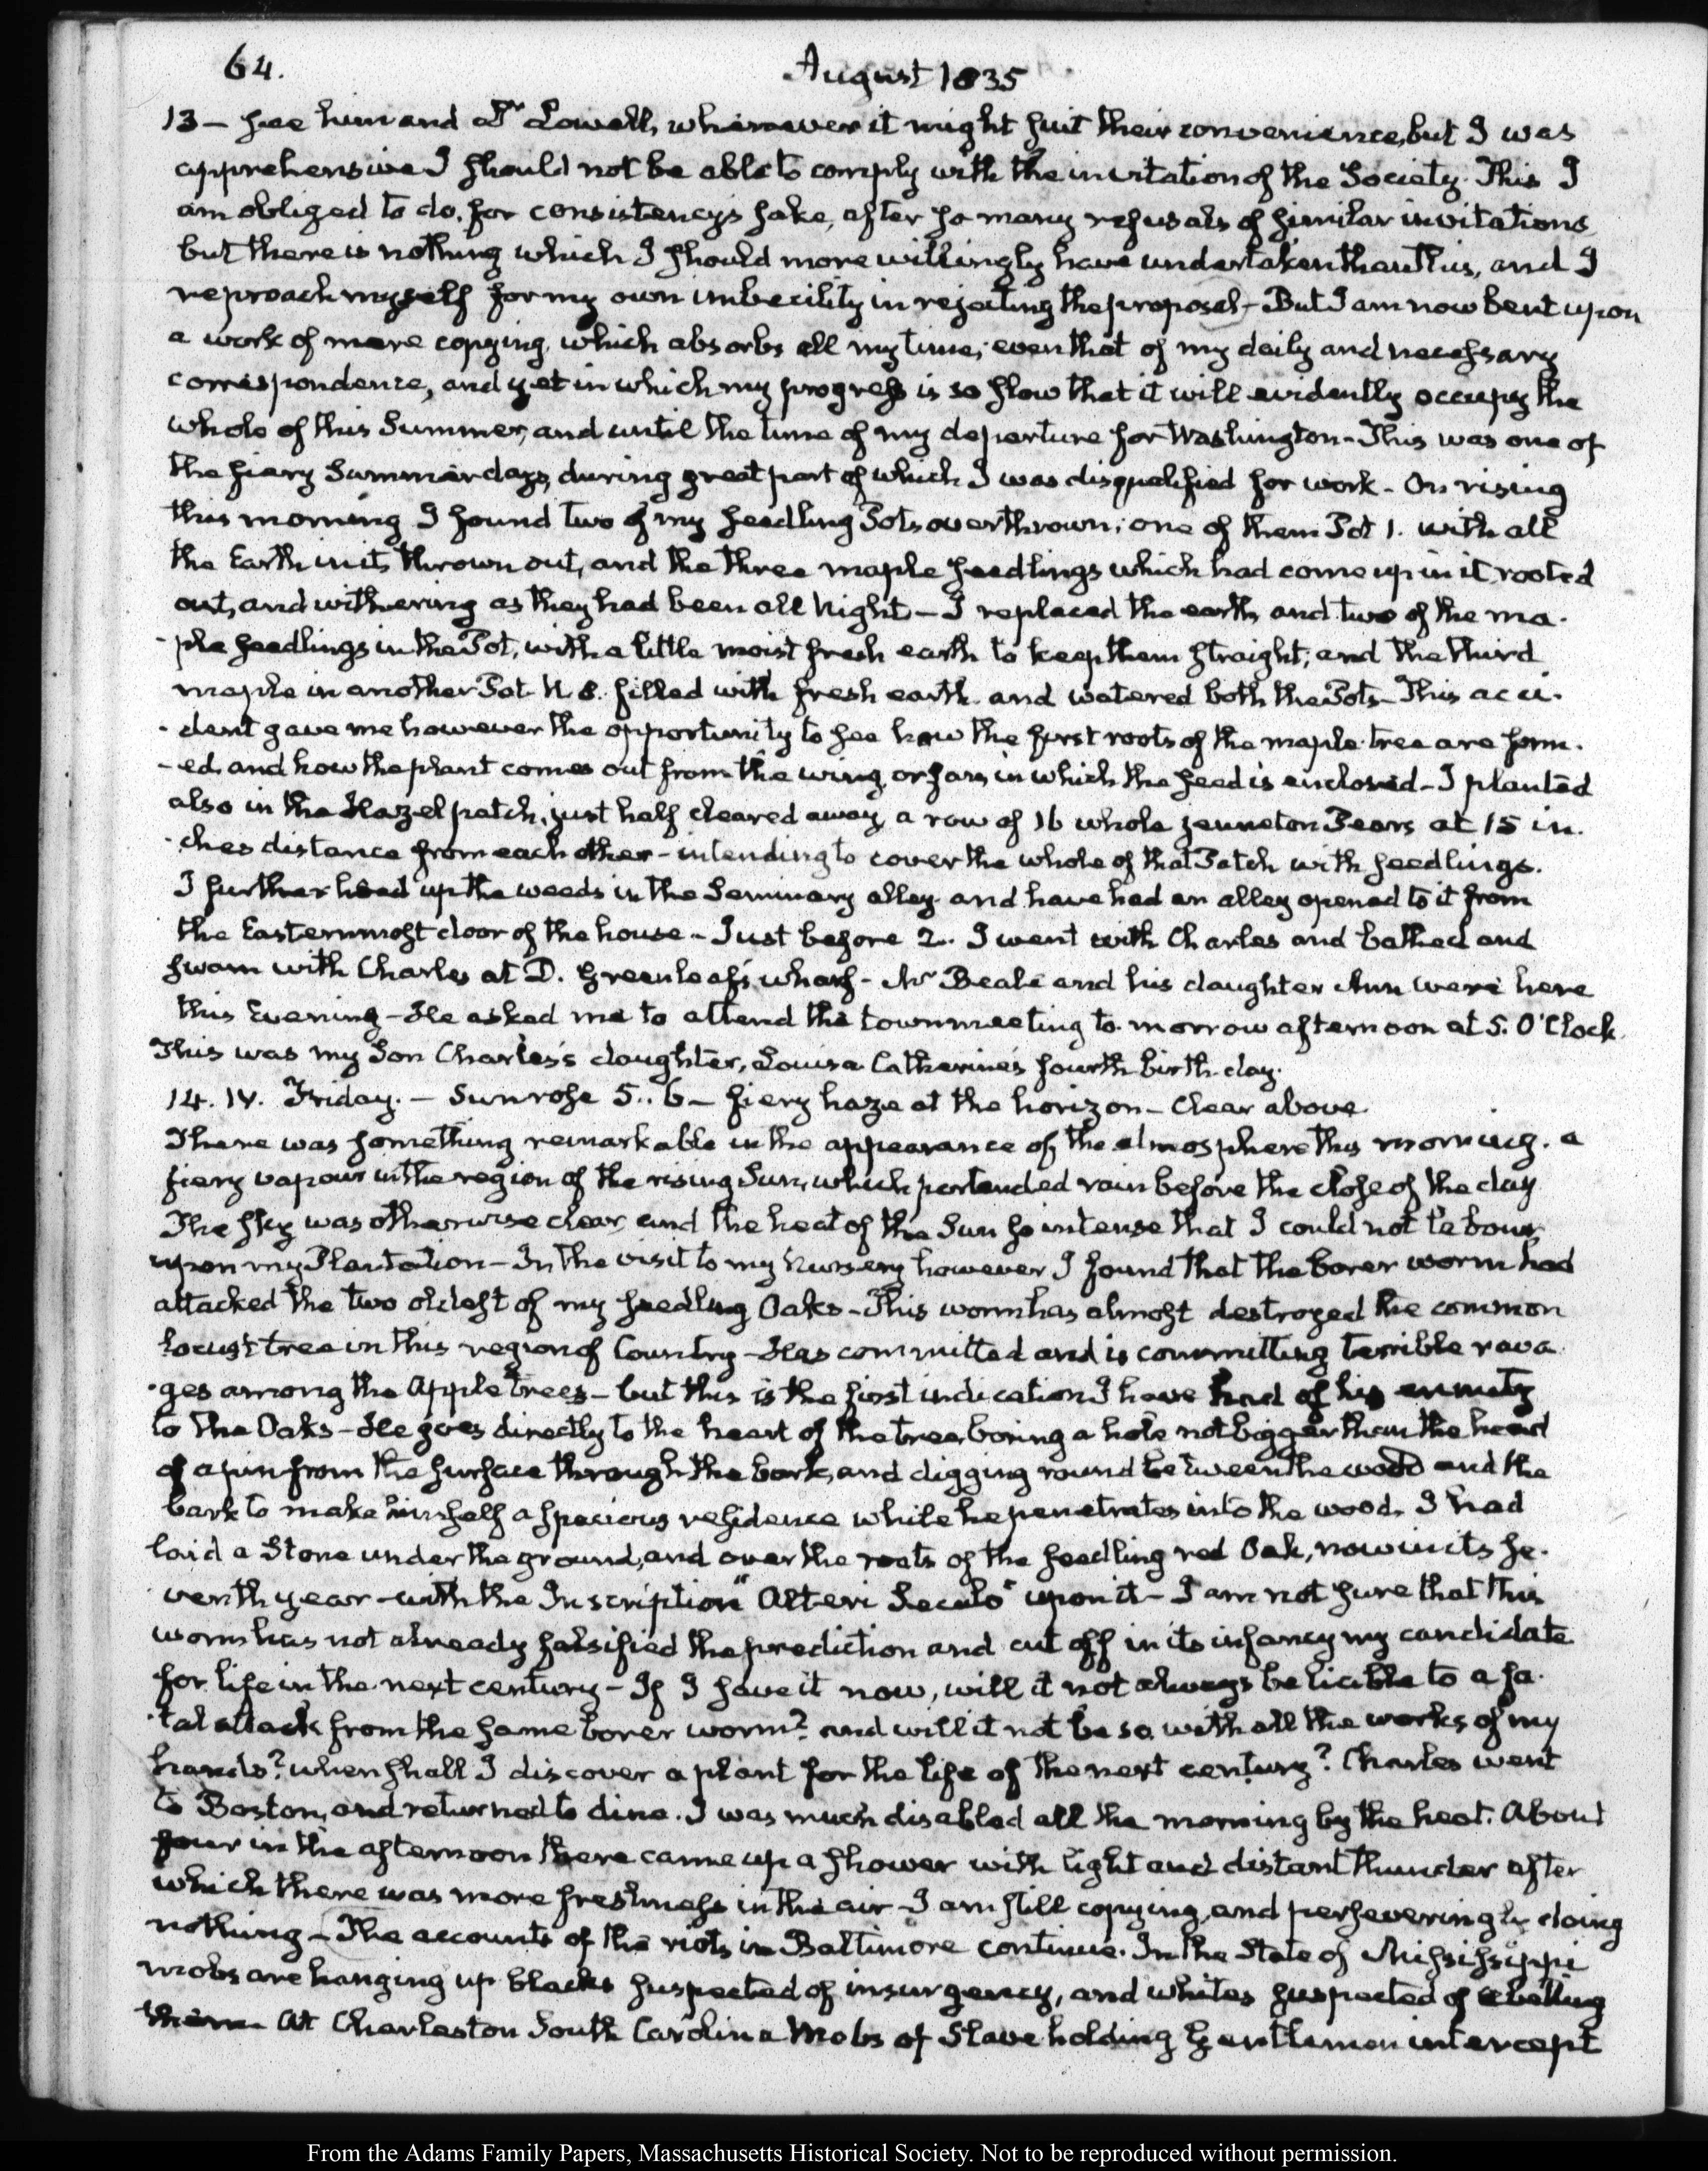 64.
August 1835
13 — see him and Dr Lowell, whenever it might suit their convenience, but I was
apprehensive I should not be able to comply with the invitation of the Society. This I
am obliged to do, for consistency's sake, after so many refusals of similar invitations
but there is nothing which I should more willingly have undertaken than this, and I
reproach myself for my own imbecility in rejecting the proposal — But I am now bent upon
a work of mere copying, which absorbs all my time; even that of my daily and necessary
correspondence, and yet in which my progress is so slow that it will evidently occupy the
whole of this Summer, and until the time of my departure for Washington — This was one of
the fiery Summer days, during great part of which I was disqualified for work — On rising
this morning I found two of my seedling Pots overthrown; one of them Pot 1. with all
the Earth in it, thrown out, and the three maple seedlings which had come up in it, rooted
out, and withering as they had been all Night — I replaced the earth and two of the ma-
-ple seedlings in the Pot, with a little moist fresh earth to keep them straight; and the third
maple in another Pot N. 8. filled with fresh earth and watered both the Pots — This acci-
-dent gave me however the opportunity to see how the first roots of the maple tree are form-
-ed, and how the plant comes out from the wing, or fan, in which the seed is enclosed — I planted
also in the Hazel patch, just half cleared away, a row of 16 whole jenneton Pears at 15 in-
-ches distance from each other — intending to cover the whole of that Patch with seedlings.
I further hoed up the weeds in the Seminary alley and have had an alley opened to it from
the Easternmost door of the house — Just before 2. I went with Charles and bathed and
swam with Charles at D. Greenleaf's wharf — Mr Beale and his daughter Ann were here
this Evening — He asked me to attend the town meeting to-morrow afternoon at 5. O'Clock
This was my Son Charles's daughter, Louisa Catherine's fourth birth-day.
14. IV. Friday. — Sun rose 5..6 — fiery haze at the horizon — Clear above.
There was something remarkable in the appearance of the atmosphere this morning. a
fiery vapour in the region of the rising Sun, which portended rain before the close of the day
The sky was otherwise clear, and the heat of the Sun so intense that I could not labour
upon my Plantation — In the visit to my Nursery however I found that the borer worm had
attacked the two oldest of my seedling Oaks — This worm has almost destroyed the common
locust tree in this region of Country — Has committed and is committing terrible rava-
-ges among the Apple trees — but this is the first indication I have had of his enmity
to the Oaks — He goes directly to the heart of the tree, boring a hole not bigger than the head
of a pin from the surface through the bark, and digging round between the wood and the
bark to make himself a spacious residence while he penetrates into the wood. I had
laid a Stone under the ground, and over the roots of the seedling red Oak, now in its se-
-venth year — with the Inscription "Alteri Seculo" upon it — I am not sure that this
worm has not already falsified the prediction and cut off in its infancy my candidate
for life in the next century — If I save it now, will it not always be liable to a fa-
-tal attack from the same borer worm? and will it not be so with all the works of my
hands? when shall I discover a plant for the life of the next century? Charles went
to Boston, and returned to dine. I was much disabled all the morning by the heat. About
four in the afternoon there came up a shower with light and distant thunder after
which there was more freshness in the air — I am still copying, and perseveringly doing
nothing — The accounts of the riots in Baltimore continue. In the State of Mississippi
mobs are hanging up blacks suspected of insurgency, and whites suspected of abetting
them. At Charleston South Carolina Mobs of Slave holding Gentlemen intercept
From the Adams Family Papers, Massachusetts Historical Society. Not to be reproduced without permission.